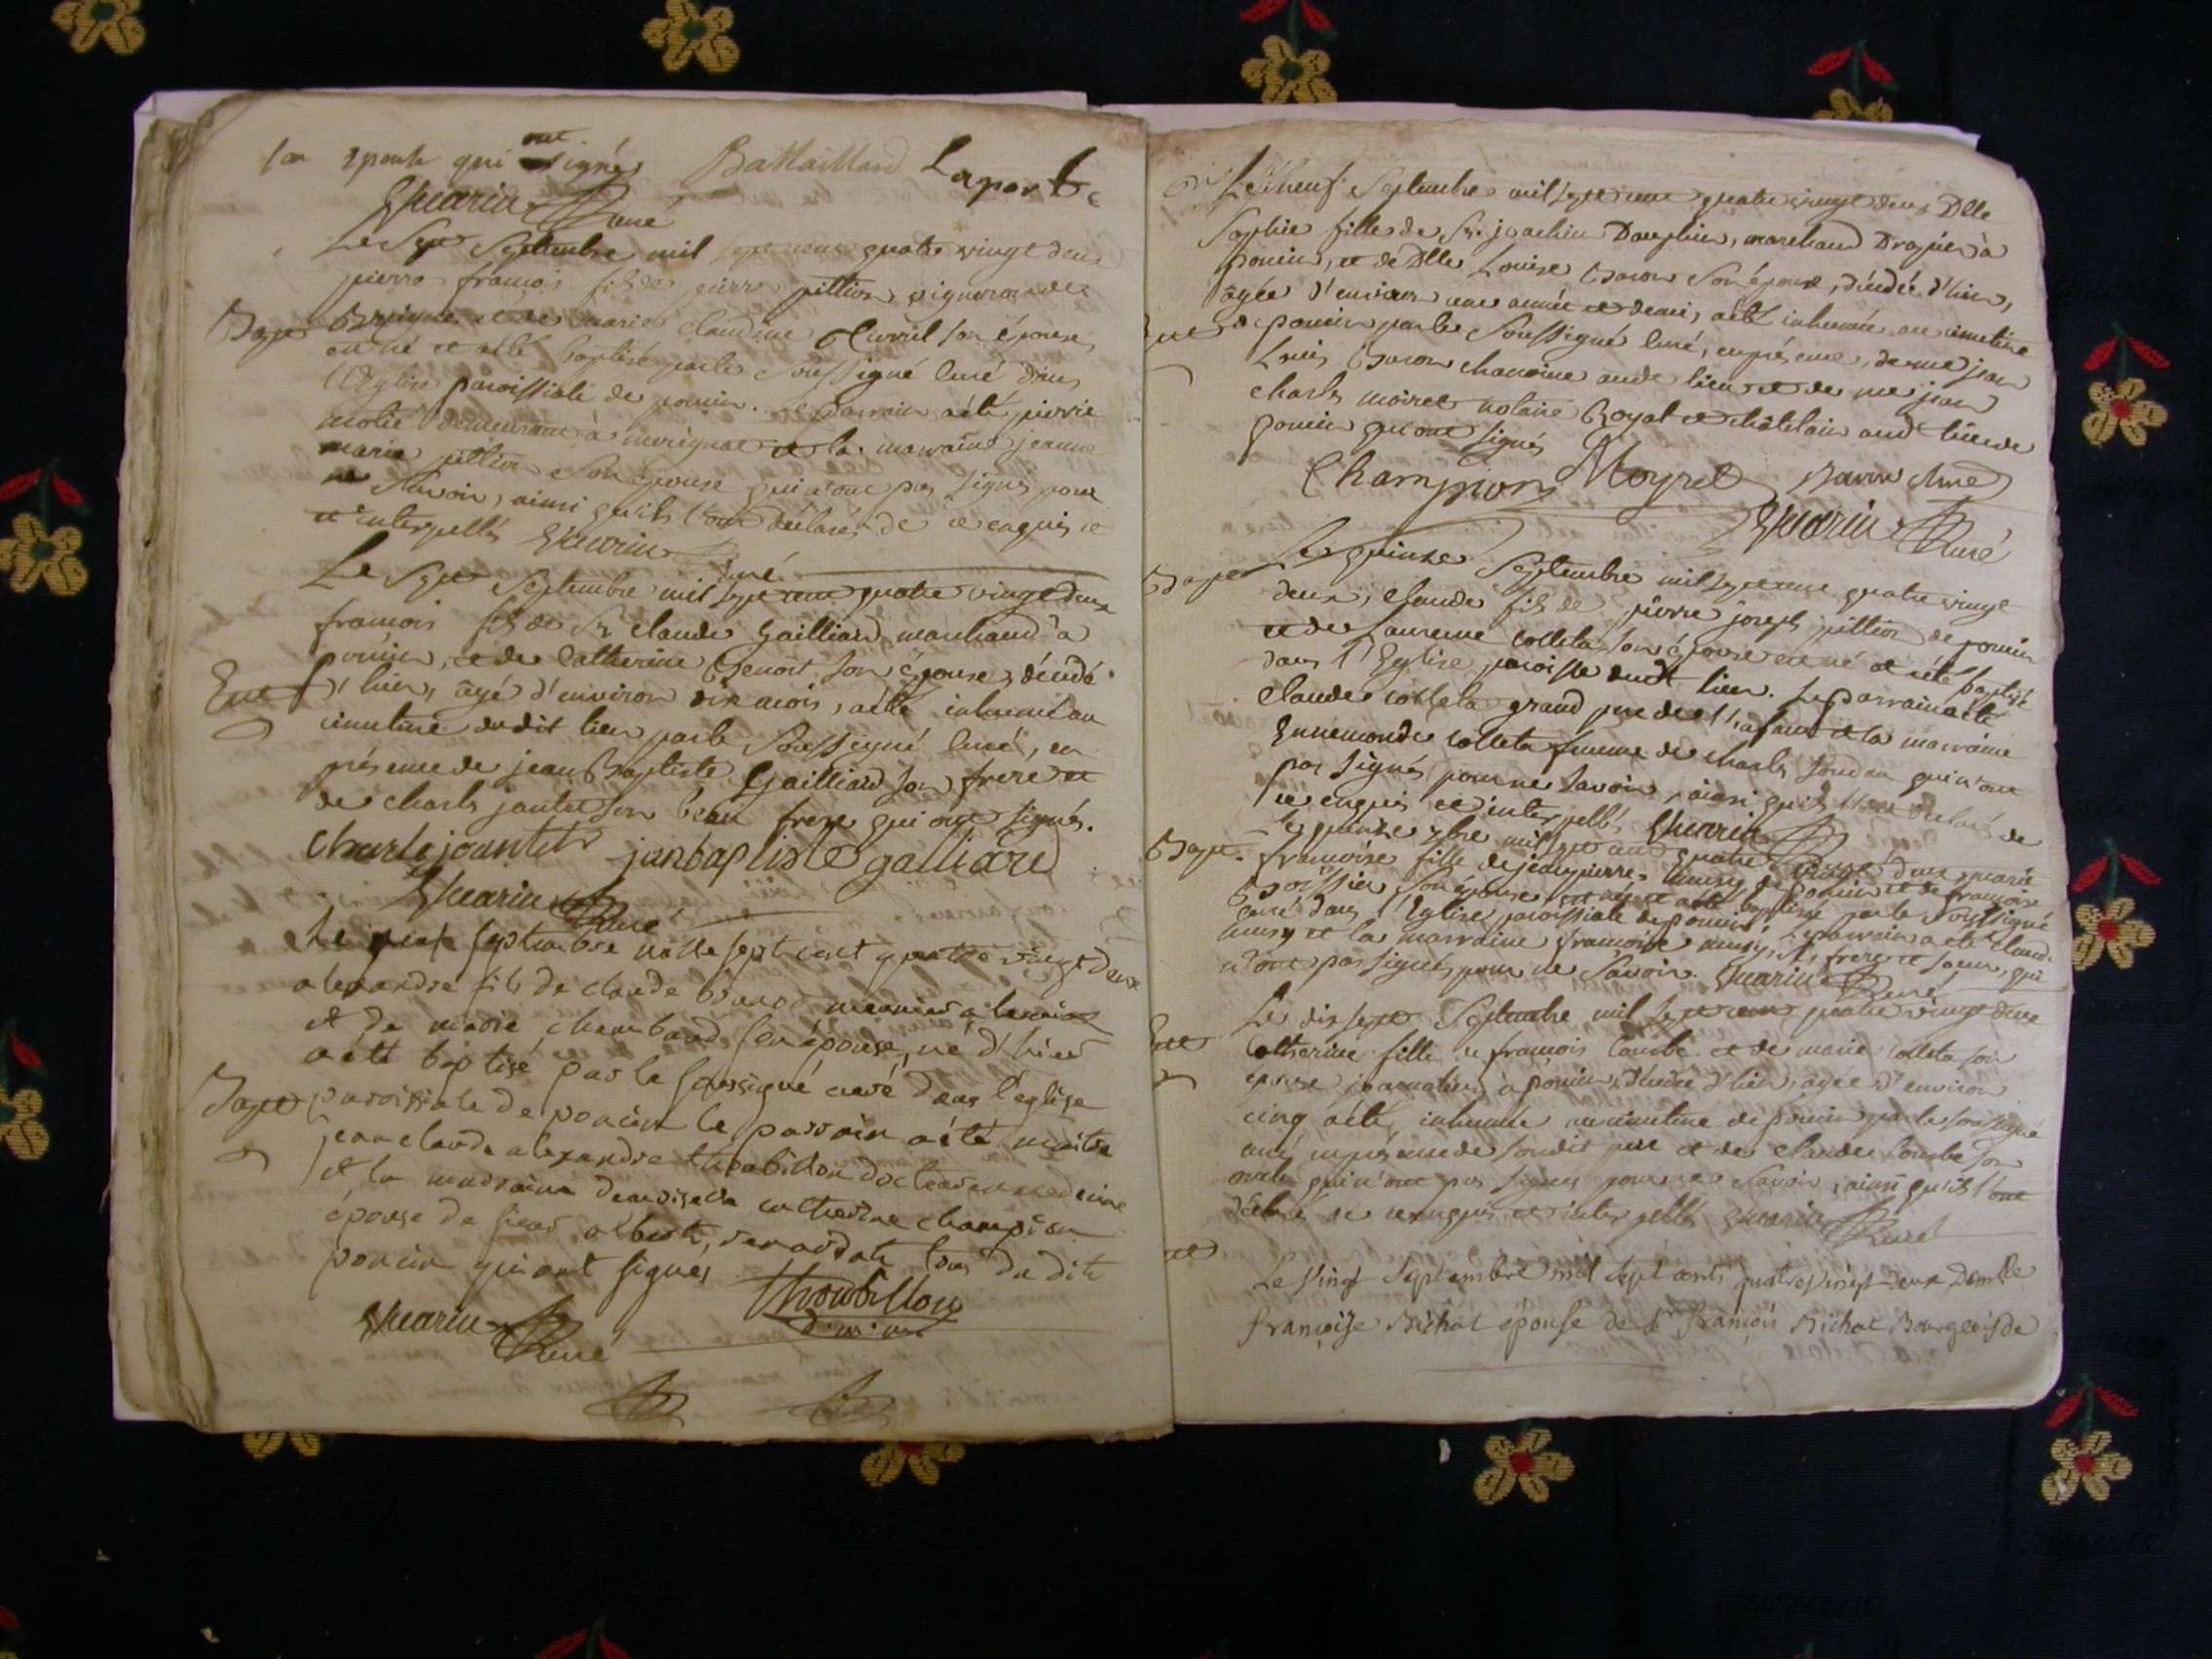 son epouse qui ont signés Battaillard Laporte
Guarin Curé
Le Sept Septembre mil sept cent quatre vingt deux
pierre francois fils de pierre pittion vigneron de
Bapt
et de marie claudine Curvil son épouse
est né et a été baptisé par le Soussigné Curé dans
l'Eglise paroissiale de poncin. le parrain a été pierre
molié demeurant à merignat et la marraine jeanne
marie pittion Son épouse qui n'ont pas signés pour
ne Savoir, ainsi qu'ils l'ont déclarés de ce enquis et
et interpellés Guarin
Curé
Le Sept Septembre mil sept cent quatre vingt deux
francois fils de Sr. claude Gailliard marchand à
poncin, et de Catherine Benoit son épouse, décédé
Ent d'hier, âgé d'environ dix mois, a été inhumé au
cimetiere du dit lieu par le Soussigné Curé, en
présence de jean Baptiste Gailliard son frere et
de charle jantet son beau frere qui ont signés.
Charle joantet janbaptiste galliard
Guarin Curé
Le neuf septembre mille sept cent quatre vingt deux
alexandre fils de claude brunod meunier a
et de marie chambard son épouse, né d'hier
a été baptisé par le soussigné curé dans l'eglise
Bapt paroissiale de poncin le parrain a été maitre
jean claude alexandre throbillon docteur en medecine
et la marraine demoiselle catherine champion
épouse de sieur albert, tous du dit
poncin qui ont signés Throubillon
D. m. m.
Guarin Curé
Le neuf Septembre mil sept cent quatre vingt deux Dlle
Sophie fille de Sr. joachin Dauphin, marchand Drapier à
poncin, et de Dlle Louise Baron Son épouse, décédée d'hier,
âgée d'environ une année et demi, a été inhumée au cimetiere
Ent de poncin par le Soussigné Curé, en présence, de me jean
Louis Baron chanoine au dt lieu et de me jean
charles moiret notaire Royal et châtelain aud lieu de
poncin qui ont signés
Champion Moyret Baron chne
Guarin Curé
Bapt Le quinze Septembre mil sept cent quatre vingt
deux, claude fils de pierre joseph pittion de poncin
et de Laurence Colleta son épouse est né et a été baptisé
dans l'Eglise paroisse dudt lieu. Le parrain a été
claude colleta grand pere de l'enfant et la marraine
Ennemonde colleta femme de charle qui n'ont
pas signés pour ne Savoir, ainsi qu'ils l'ont déclarés de
ce enquis et interpellés Guarin Curé
Bapt. Le quinze 7bre mil sept cent quatre vingt deux marie
francoise fille de jean pierre de poncin et de francoise
Boissier Son épouse est née et a été baptisée par le soussigné
Curé dans l'Eglise paroissiale de poncin. Le parrain a été Claude
et la marraine francoise frere et soeur, qui
n'ont pas signés pour ne Savoir. Guarin Curé
Le dix sept Septembre mil sept cent quatre vingt deux
Ent Catherine fille de françois Combe et de marie Colleta son
épouse journalier à poncin, décédée d'hier, agée d'environ
cinq a été inhumée au cimetiere de poncin par le soussigné
curé en présence de son dit pere et de claude Combe son
oncle qui n'ont pas signés pour ne Savoir, ainsi qu'ils l'ont
déclarés de ce enquis et interpellés Guarin Curé
Ent
Le Vingt Septembre mil sept cents quatre vingt deux Demlle
françoise Bichat épouse de Sr françois Bichat Bourgeois de